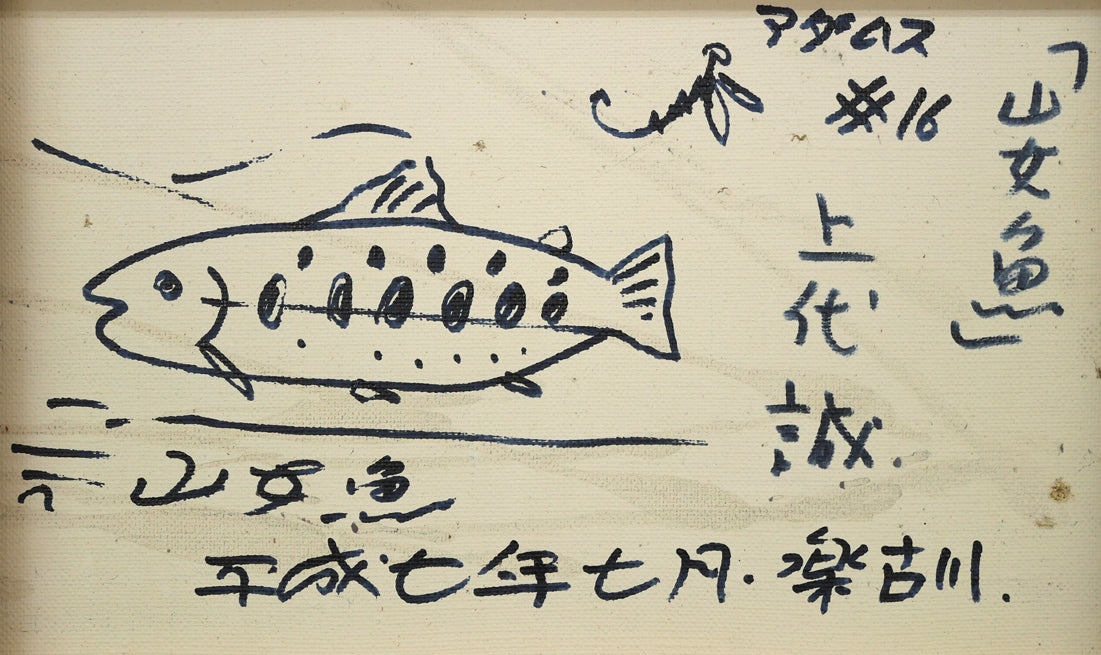 「山女魚」
アダムス
#16
上代誠.
山女魚
平成七年七月.楽古川.